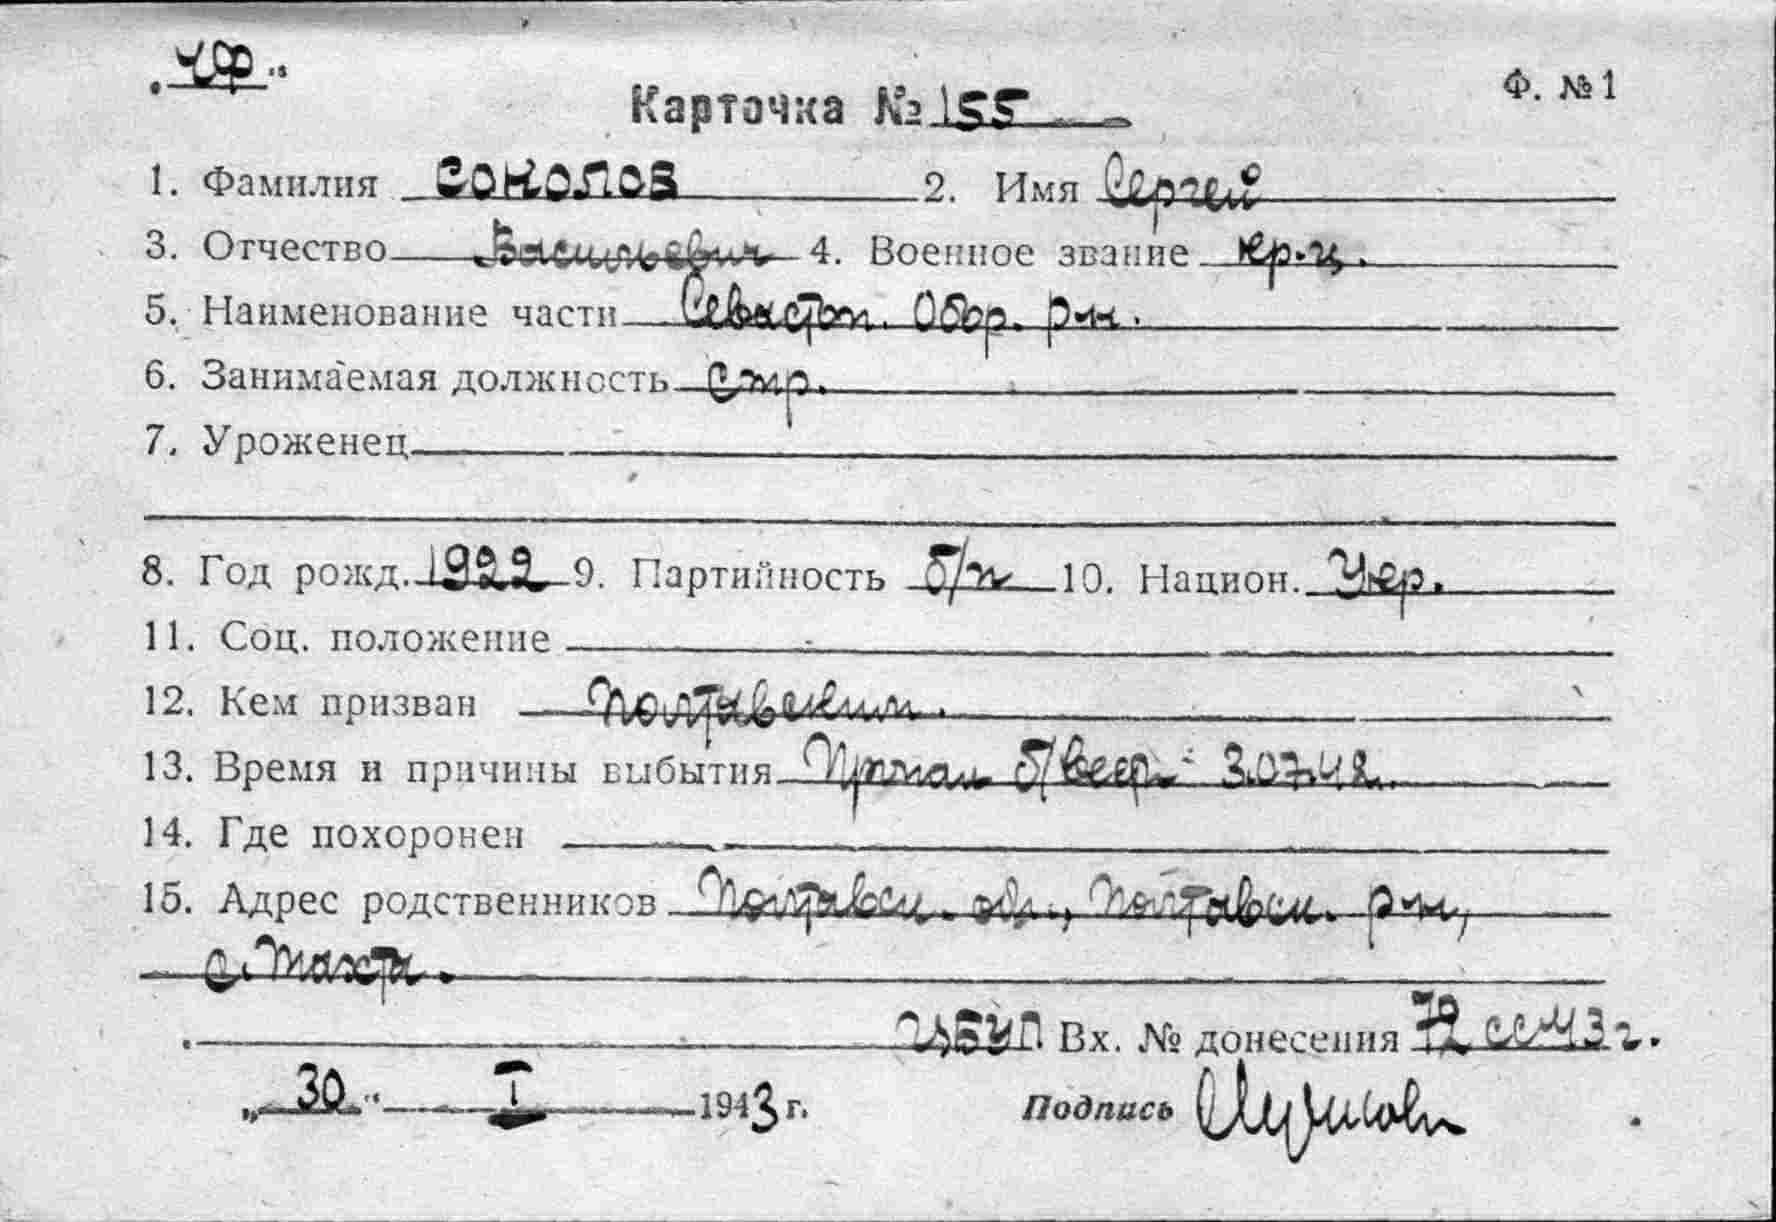 „ЧФ“
Ф. №1
Карточка № 155
1. Фамилия Соколов 2. Имя Сергей
3. Отчество Васильевич 4. Военное звание кр-ц.
5. Наименование части Севастоп. Обор. р-н.
6. Занимаемая должность Стр.
7. Уроженец
8. Год рожд. 1922 9. Партийность б/п 10. Национ. Укр.
11. Соц. положение
12. Кем призван Полтавским.
13. Время и причины выбытия Пропал б/вест. 3.07.42.
14. Где похоронен
15. Адрес родственников Полтавск. обл., Полтавск. р-н,
с. Тахта.
ЦБУП Вх. № донесения 72 сс 43 г.
„30“ I 1943 г. Подпись